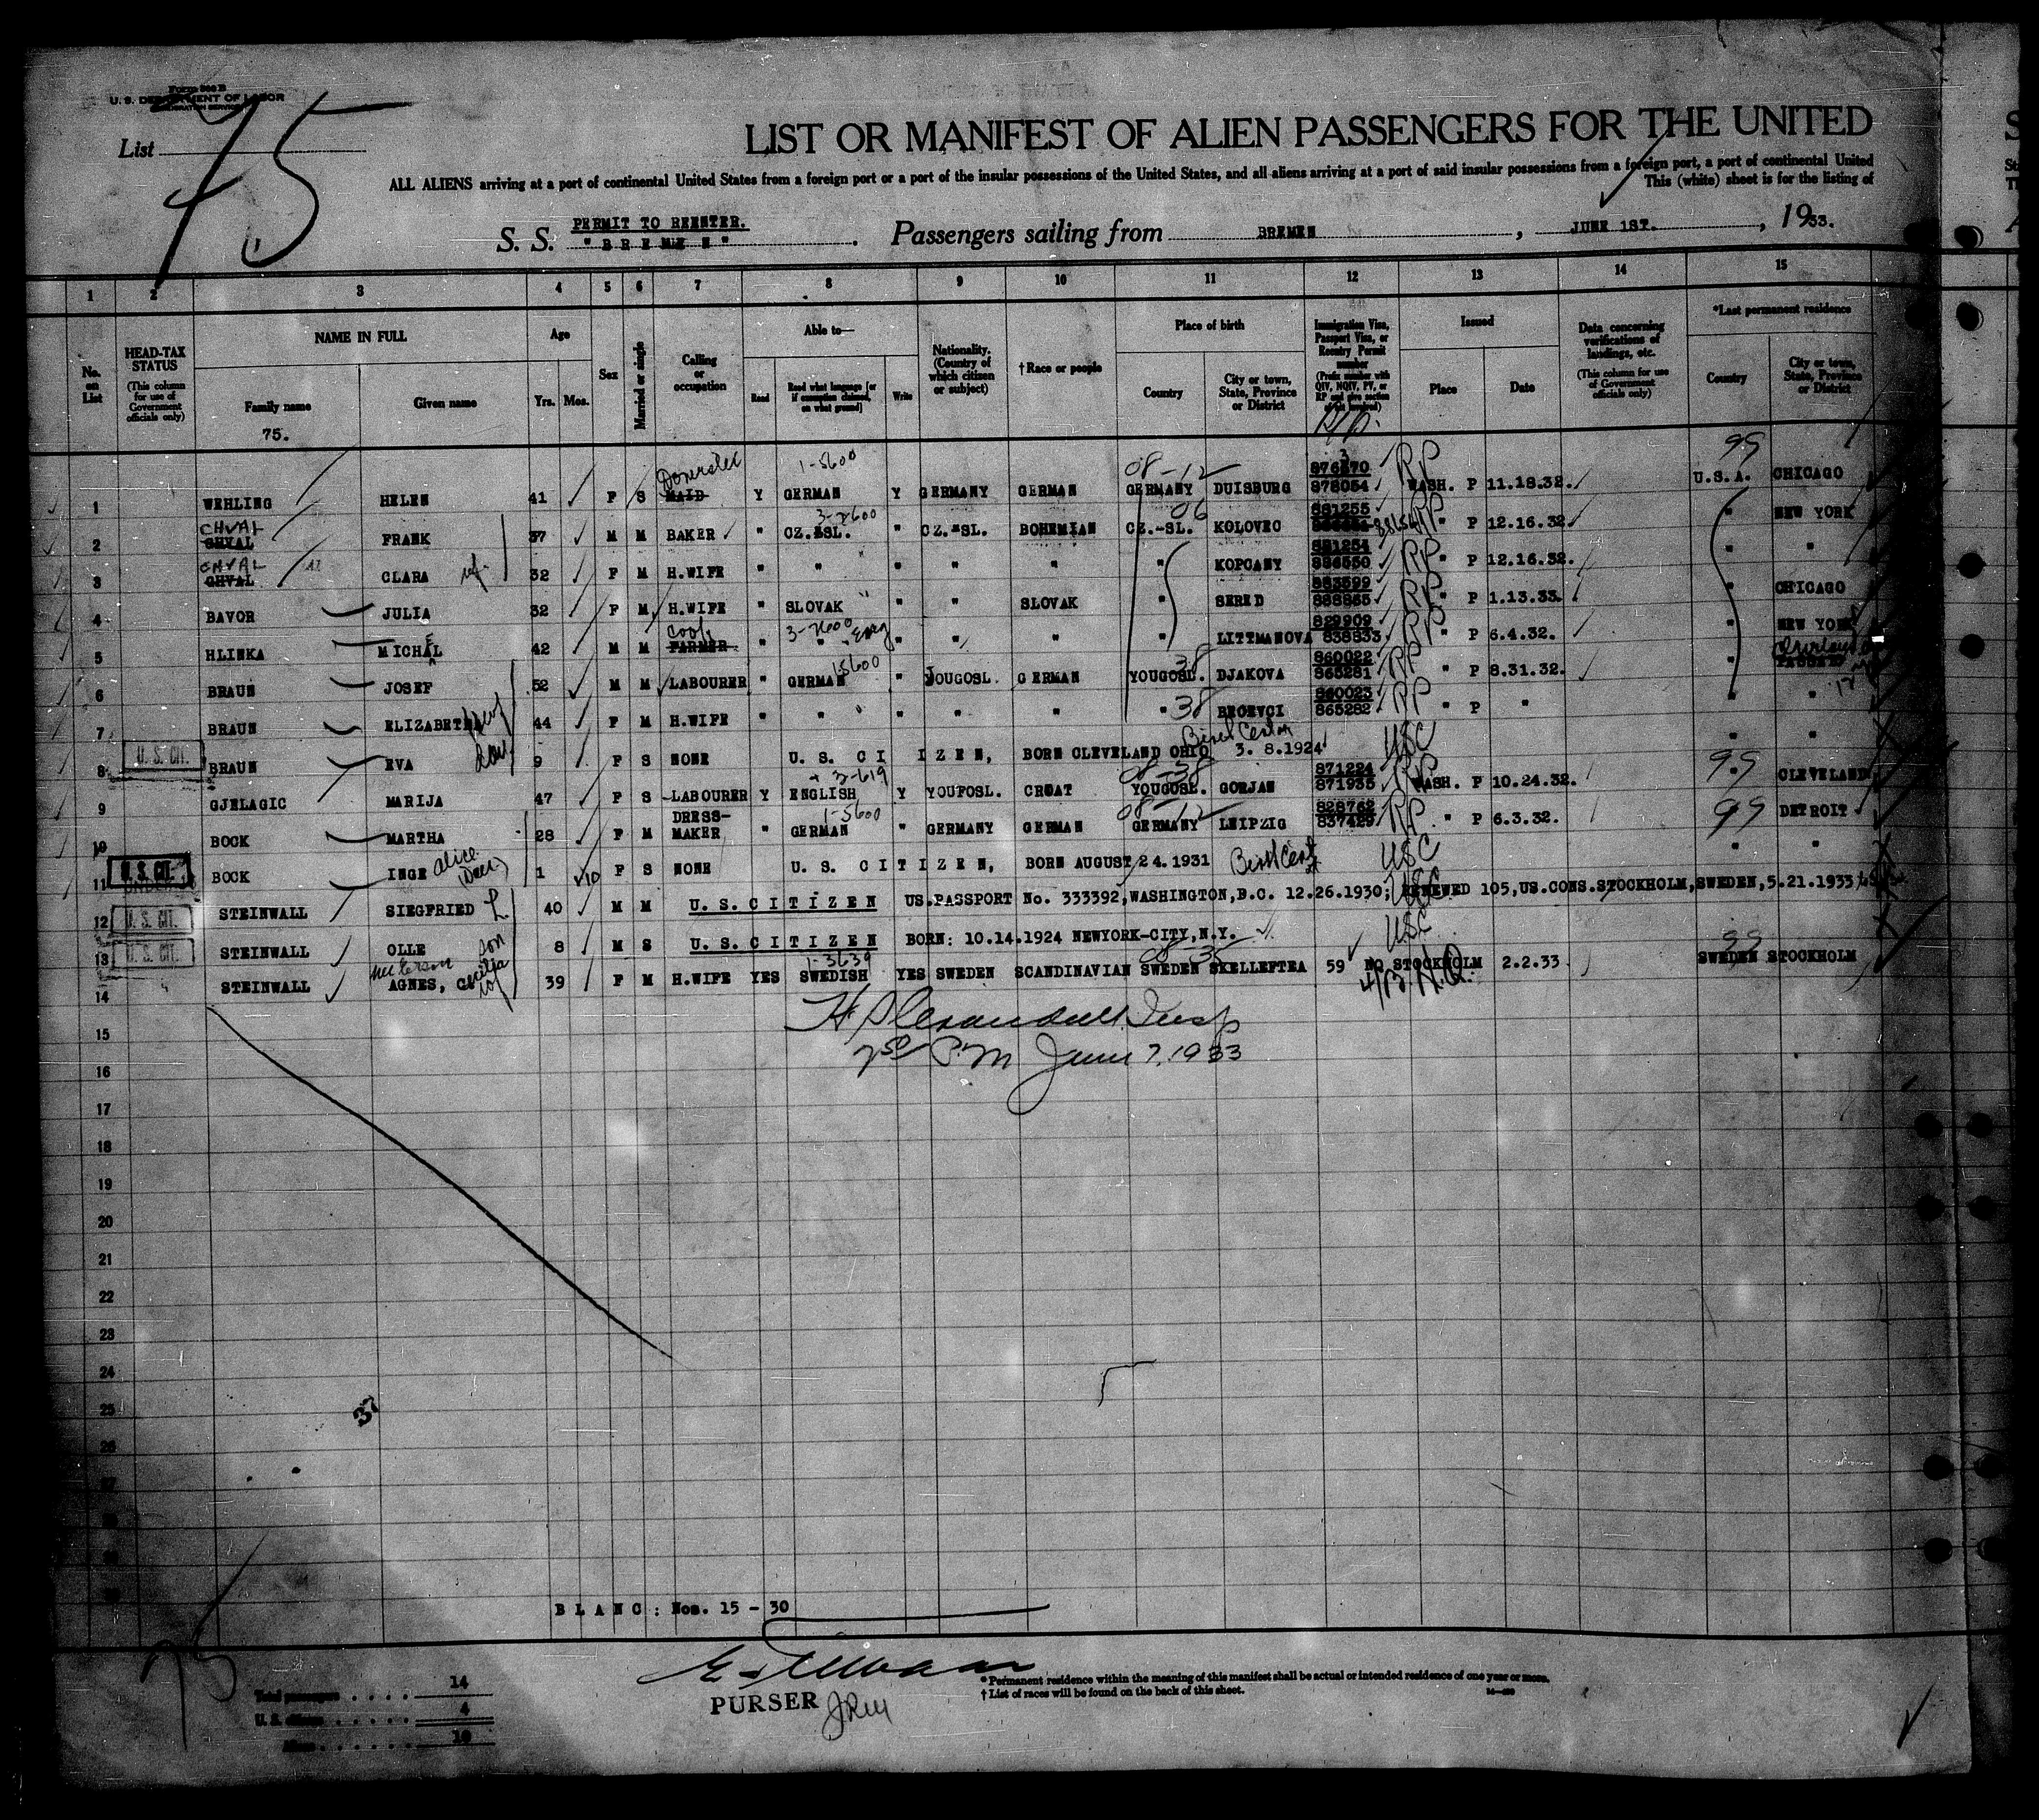 Form 500 B
U. S. DEPARTMENT OF LABOR
IMMIGRATION SERVICE
List
75
LIST OR MANIFEST OF ALIEN PASSENGERS FOR THE UNITED
ALL ALIENS arriving at a port of continental United States from a foreign port or a port of the insular possessions of the United States, and all aliens arriving at a port of said insular possessions from a foreign port, a port of continental United
This (white) sheet is for the listing of
PERMIT TO REENTER.
S. S. "BREMEN". Passengers sailing from BREMEN, JUNE 1ST., 1933.
1 2 3 4 5 6 7 8 9 10 11 12 13 14 15
No. on List
HEAD-TAX STATUS (This column for use of Government officials only)
NAME IN FULL
Family name
Given name
75.
Age
Yrs. Mos.
Sex
Married or single
Calling or occupation
Able to—
Read
Read what language [or if exemption claimed, on what ground]
Write
Nationality. (Country of which citizen or subject)
† Race or people
Place of birth
Country
City or town, State, Province or District
Immigration Visa, Passport Visa, or Reentry Permit number
(Prefix number with QIV, NQIV, PV, or RP and give section of act involved)
Issued
Place
Date
Data concerning verifications of landings, etc.
(This column for use of Government officials only)
*Last permanent residence
Country
City or town, State, Province or District
1-5600 08-12 99
1 WEHLING HELEN 41 F S MAID Y GERMAN Y GERMANY GERMAN GERMANY DUISBURG 878054 RP WASH. P 11.18.32. U.S.A. CHICAGO
CHVAL 3-2600 06 881255
2 CHVAL FRANK 37 M M BAKER " CZ.-SL. " CZ.-SL. BOHEMIAN CZ.-SL. KOLOVEC RP " P 12.16.32. " NEW YORK
CHVAL 881254
3 CHVAL CLARA wf. 32 F M H.WIFE " " " " " " KOPCANY 886550 RP " P 12.16.32. " "
883599
4 BAVOR JULIA 32 F M H.WIFE " SLOVAK " " SLOVAK " SERED 888865 RP " P 1.13.33. " CHICAGO
Cook 3-2600 829909
5 HLINKA MICHAEL 42 M M FARMER " " Eng " " " " LITTMANOVA 838833 RP " P 6.4.32. " NEW YORK
15600 38 860022
6 BRAUN JOSEF 52 M M LABOURER " GERMAN " JOUGOSL. GERMAN YOUGOSL. DJAKOVA 865281 RP " P 8.31.32. " PASSAIC
38 860023
7 BRAUN ELIZABETH wf 44 F M H.WIFE " " " " " " BECEVCI 865282 RP " P " " "
U. S. CIT.
8 BRAUN EVA dau 9 F S NONE U. S. CI IZEN, BORN CLEVELAND OHIO 3. 8.1924 USC " "
3-619 08-38 871224 99
9 GJELAGIC MARIJA 47 F S LABOURER Y ENGLISH Y YOUFOSL. CROAT YOUGOSL. GORJAN 871935 RP WASH. P 10.24.32. CLEVELAND
1-5600 08-12 828762 99
10 BOCK MARTHA 28 F M DRESS-MAKER " GERMAN " GERMANY GERMAN GERMANY LEIPZIG 837429 RP " P 6.3.32. DETROIT
U. S. CIT.
11 BOCK INGE Alice 1 10 F S NONE U. S. CITIZEN, BORN AUGUST 24. 1931 Birth Cert USC " "
U. S. CIT.
12 STEINWALL SIEGFRIED 40 M M U. S. CITIZEN US.PASSPORT No. 333392, WASHINGTON, D.C. 12.26.1930; RENEWED 105, US.CONS.STOCKHOLM, SWEDEN, 5.21.1933 USC
U. S. CIT.
13 STEINWALL OLLE son 8 M S U. S. CITIZEN BORN: 10.14.1924 NEWYORK-CITY, N.Y. USC
1-3639 99
14 STEINWALL AGNES, Cecilia wf 39 F M H.WIFE YES SWEDISH YES SWEDEN SCANDINAVIAN SWEDEN SKELLEFTEA 59 NQ STOCKHOLM 2.2.33. SWEDEN STOCKHOLM
15
16
P.M June 7. 1933
17
18
19
20
21
22
23
24
25
37
26
27
BLANC: Nos. 15 - 30
75
Total passengers . . . . 14
U. S. citizens . . . . . 4
Aliens . . . . . . 10
PURSER
* Permanent residence within the meaning of this manifest shall be actual or intended residence of one year or more.
† List of races will be found on the back of this sheet.